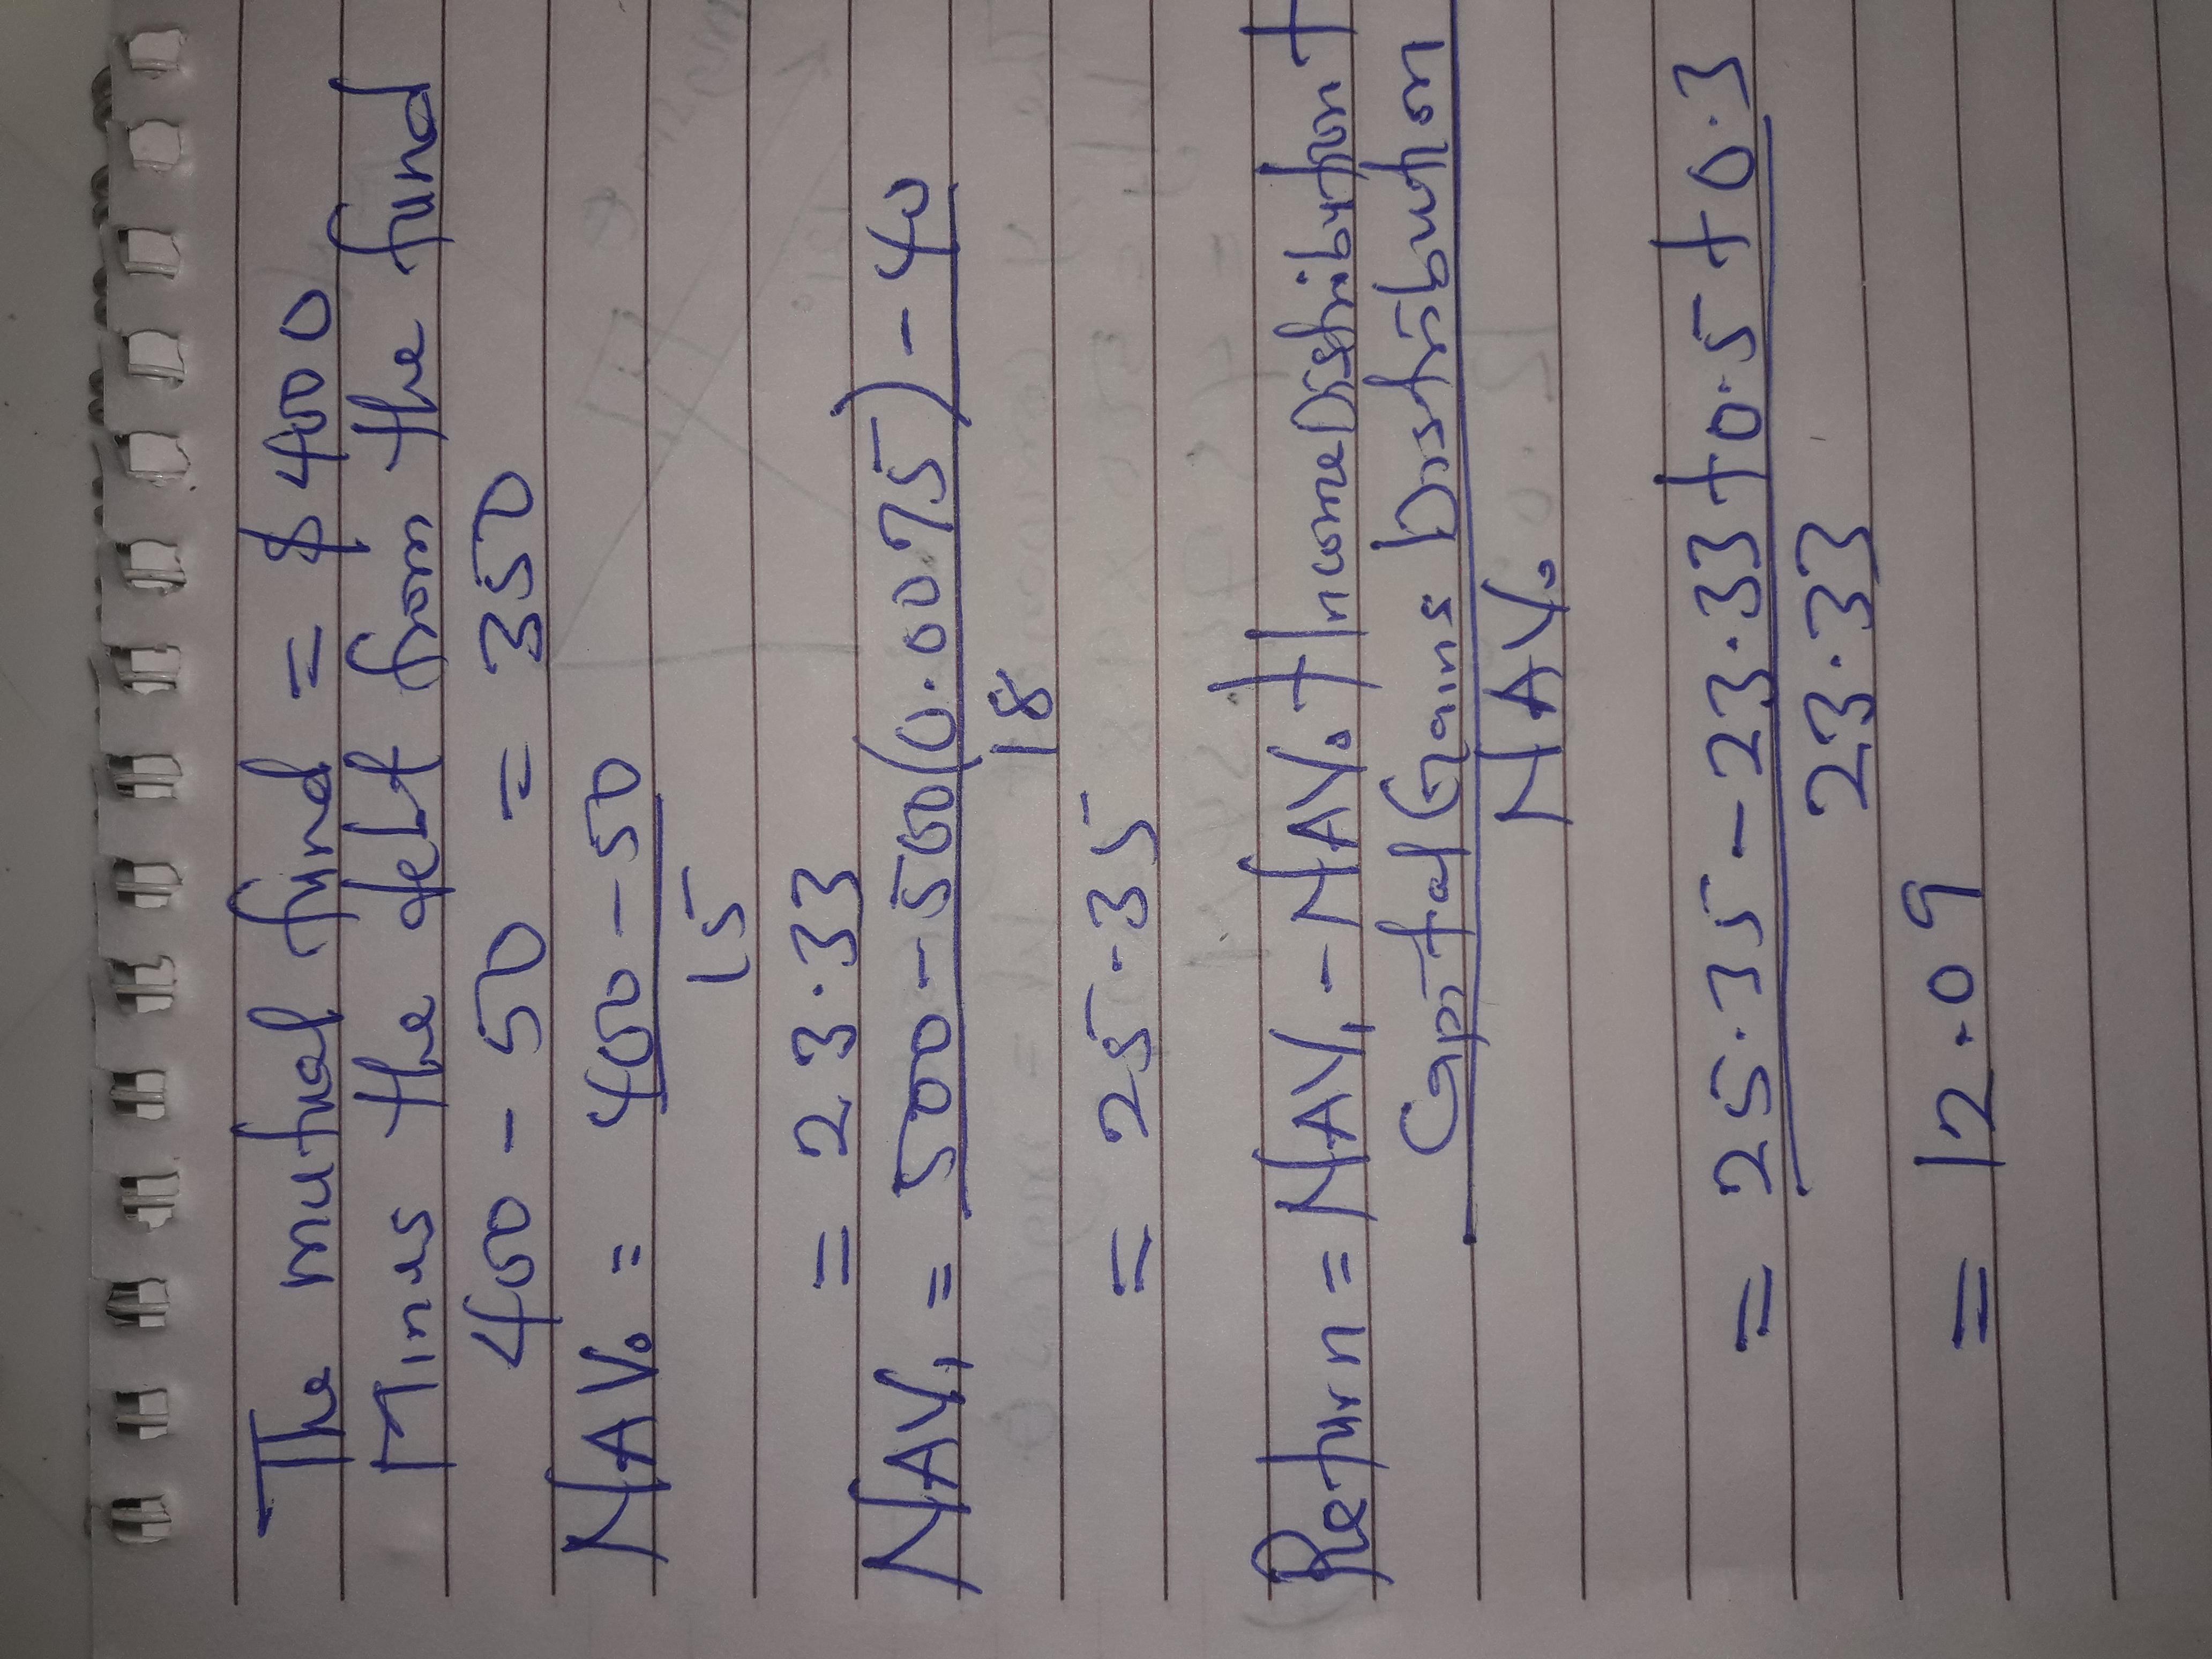 The mutual fund = $ 400
Minus the debt from the fund
400 - 50 = 350
NAV₀ = 400 - 50
15
= 23.33
NAV₁ = 500 - 500(0.0075) - 40
18
= 25.35
Return = NAV₁ - NAV₀ + Income Distribution +
Capital Gains Distribution
NAV₀
= 25.35 - 23.33 + 0.5 + 0.3
23.33
= 12.09